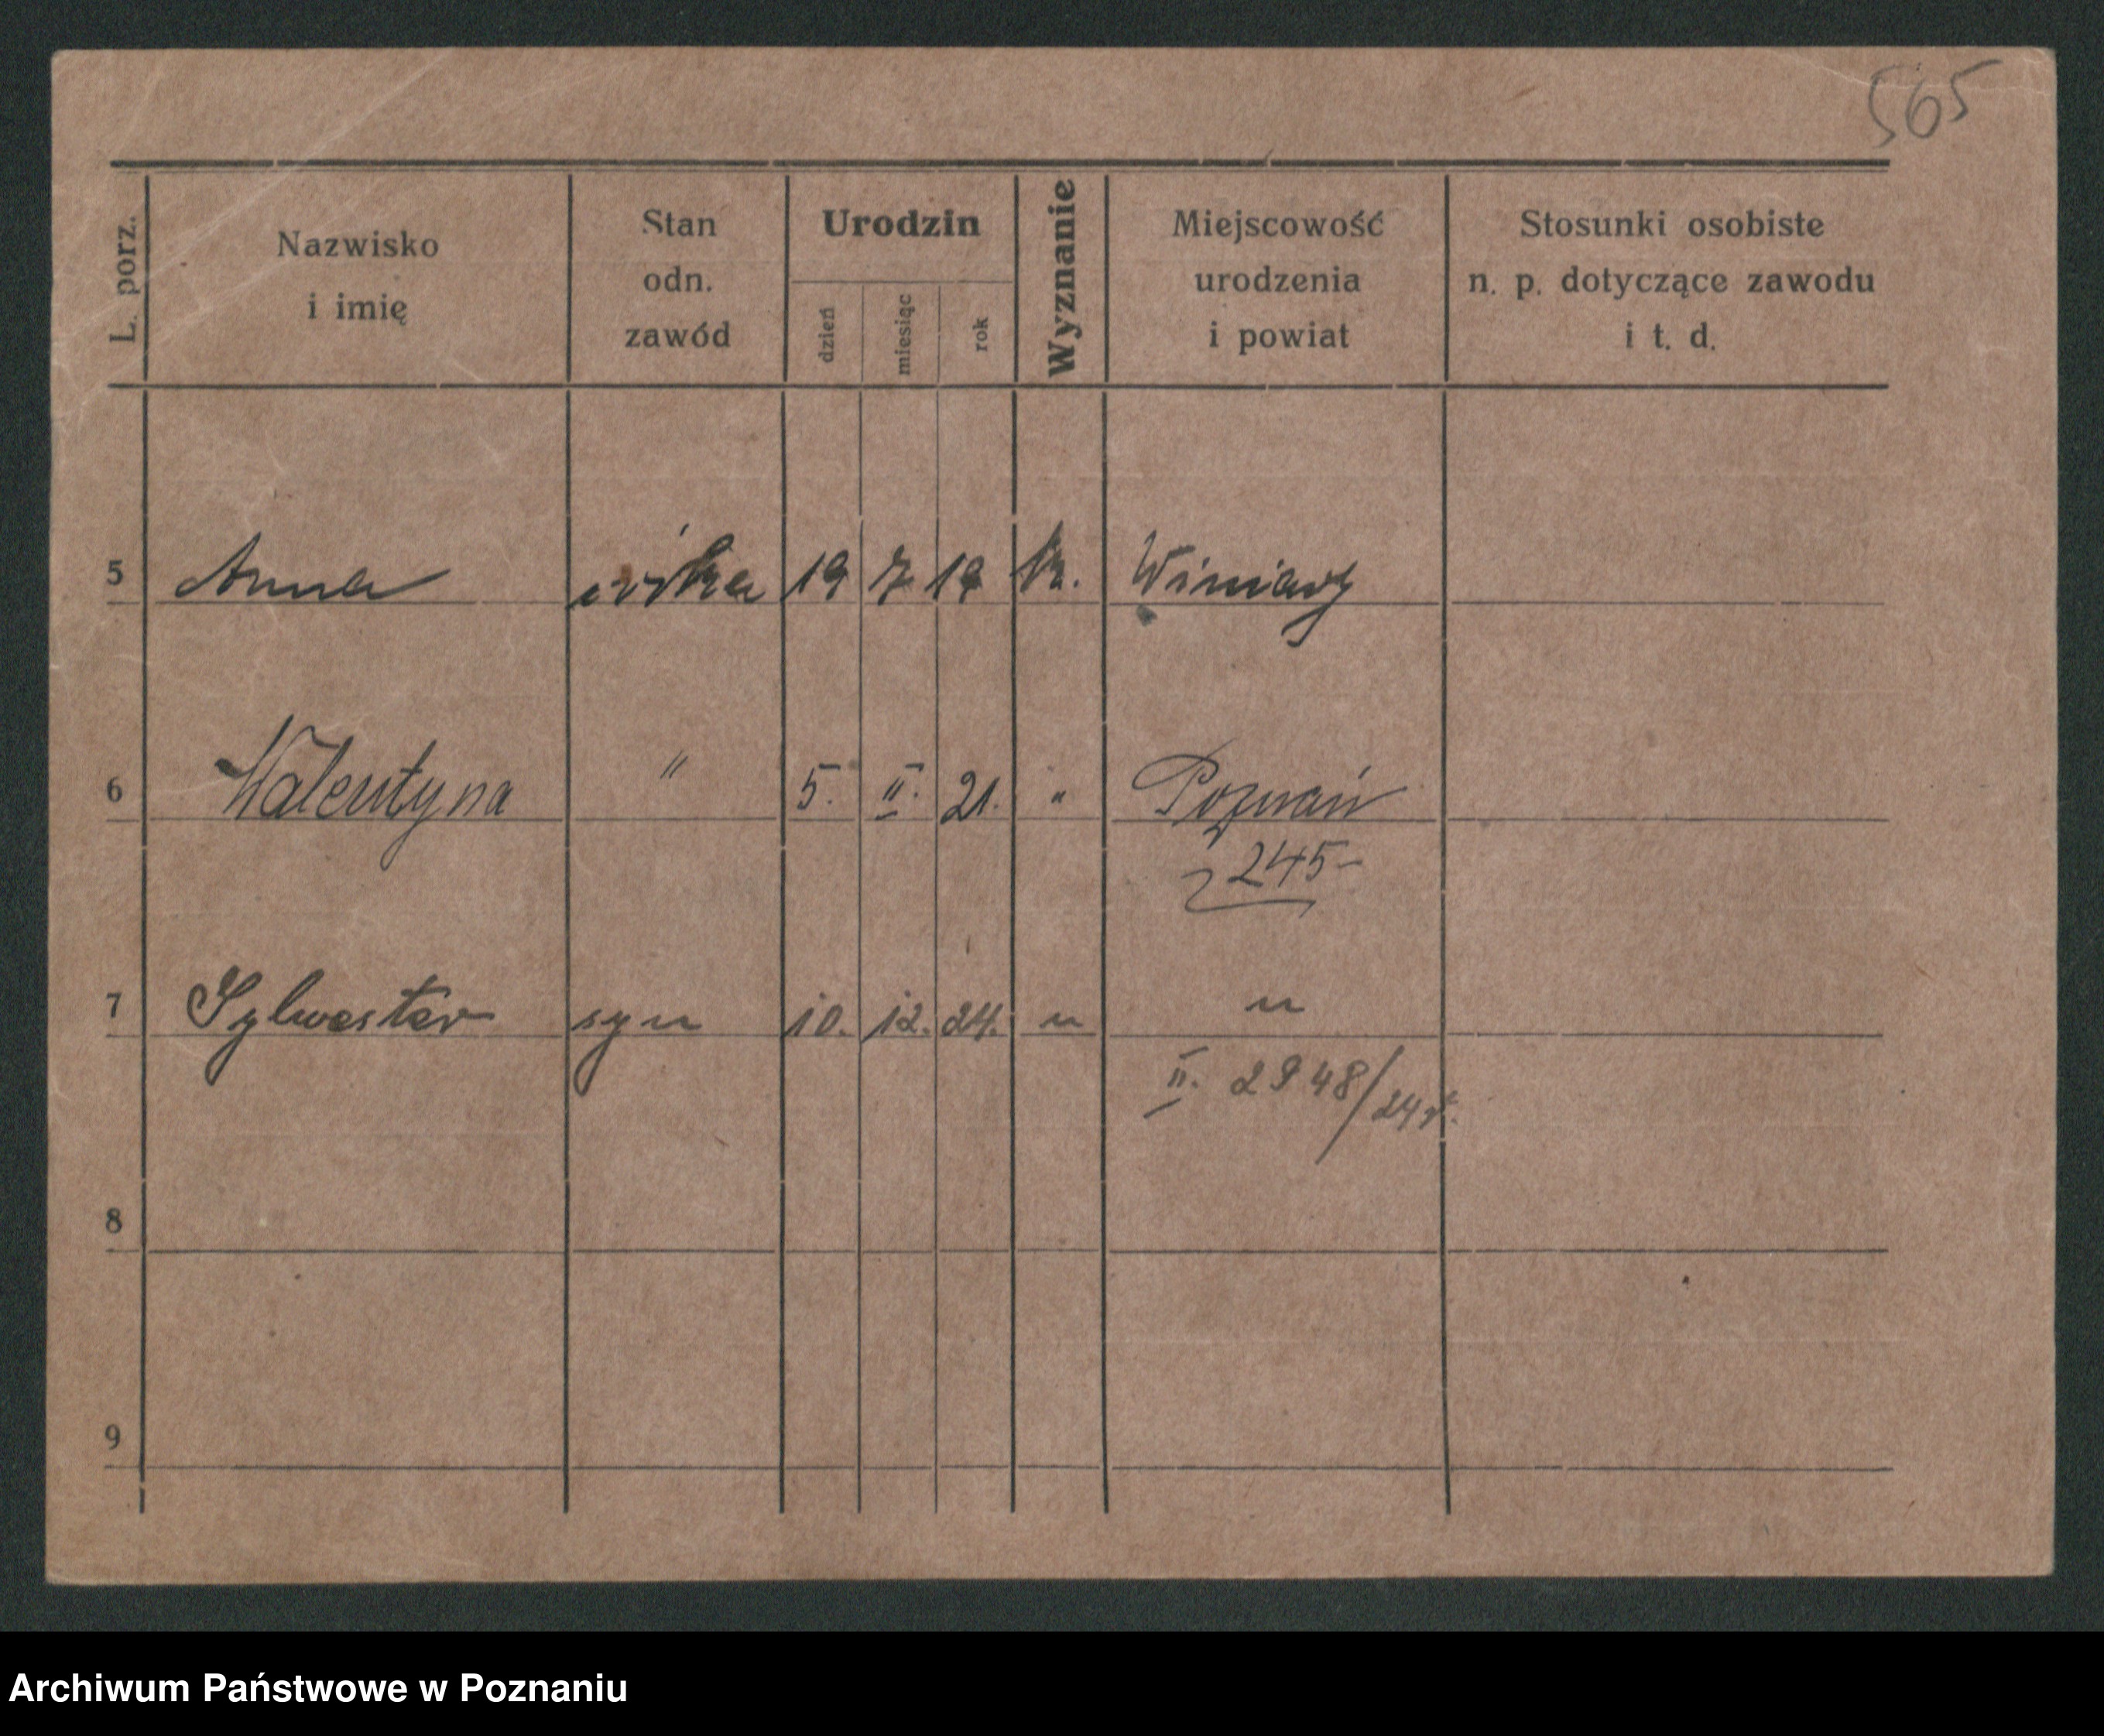 565
L. porz.
Nazwisko
i imię
Stan
odn.
zawód
Urodzin
dzień
miesiąc
rok
Wyznanie
Miejscowość
urodzenia
i powiat
Stosunki osobiste
n. p. dotyczące zawodu
i t. d.
5 Anna córka 19 7 19 k. Winiary
6 Walentyna " 5. II. 21. " Poznań
245-
7 Sylwester syn 10. 12. 24. " "
II. 2948/24 r.
8
9
Archiwum Państwowe w Poznaniu